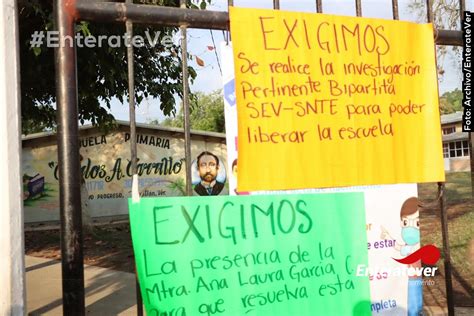 #EnterateVer
Foto: Archivo/EnterateVer
EXIGIMOS
Se realice la investigación
Pertinente Bipartita
SEV-SNTE para poder
liberar la escuela
ESCUELA PRIMARIA
Carlos A. Carrillo
EXIGIMOS
La presencia de la
Mtra. Ana Laura García C
Para que resuelva está
Enterate
completa